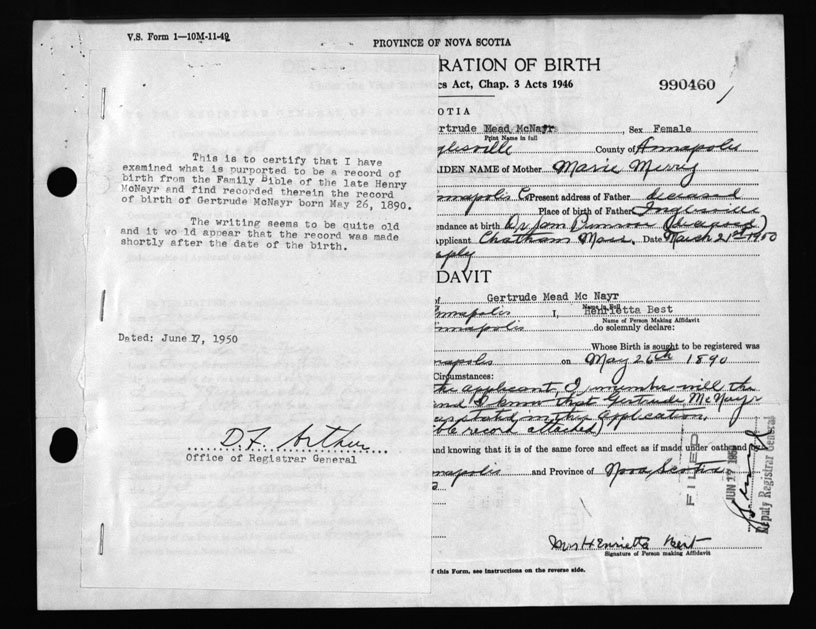 V.S. Form 1—10M-11-49
PROVINCE OF NOVA SCOTIA
RATION OF BIRTH
cs Act, Chap. 3 Acts 1946
990460
OTIA
ertrude Mead McNayr, Sex Female
Print Name in full
glesville County of Annapolis
IDEN NAME of Mother Marie Merry
nnapolis Co Present address of Father deceased
Place of birth of Father Inglesville
endance at birth Dr Sam (deceased)
pplicant Chatham Mass. Date March 21st 1950
This is to certify that I have
examined what is purported to be a record of
birth from the Family Bible of the late Henry
McNayr and find recorded therein the record
of birth of Gertrude McNayr born May 26, 1890.
The writing seems to be quite old
and it wo ld appear that the record was made
shortly after the date of the birth.
Dated: June 17, 1950
D.F. Arthur
Office of Registrar General
DAVIT
of Gertrude Mead Mc Nayr
Name in Full
nnapolis I, Henrietta Best
Name of Person Making Affidavit
nnapolis do solemnly declare:
Whose Birth is sought to be registered was
napolis on May 26th 1890
Circumstances:
the applicant, I remember well the
and I know that Gertrude McNayr
as stated in this application.
ble record attached)
and knowing that it is of the same force and effect as if made under oath and
napolis and Province of Nova Scotia
FILED
JUN 17 1950
Deputy Registrar General
Mrs Henrietta Best
Signature of Person making Affidavit
f this Form, see instructions on the reverse side.